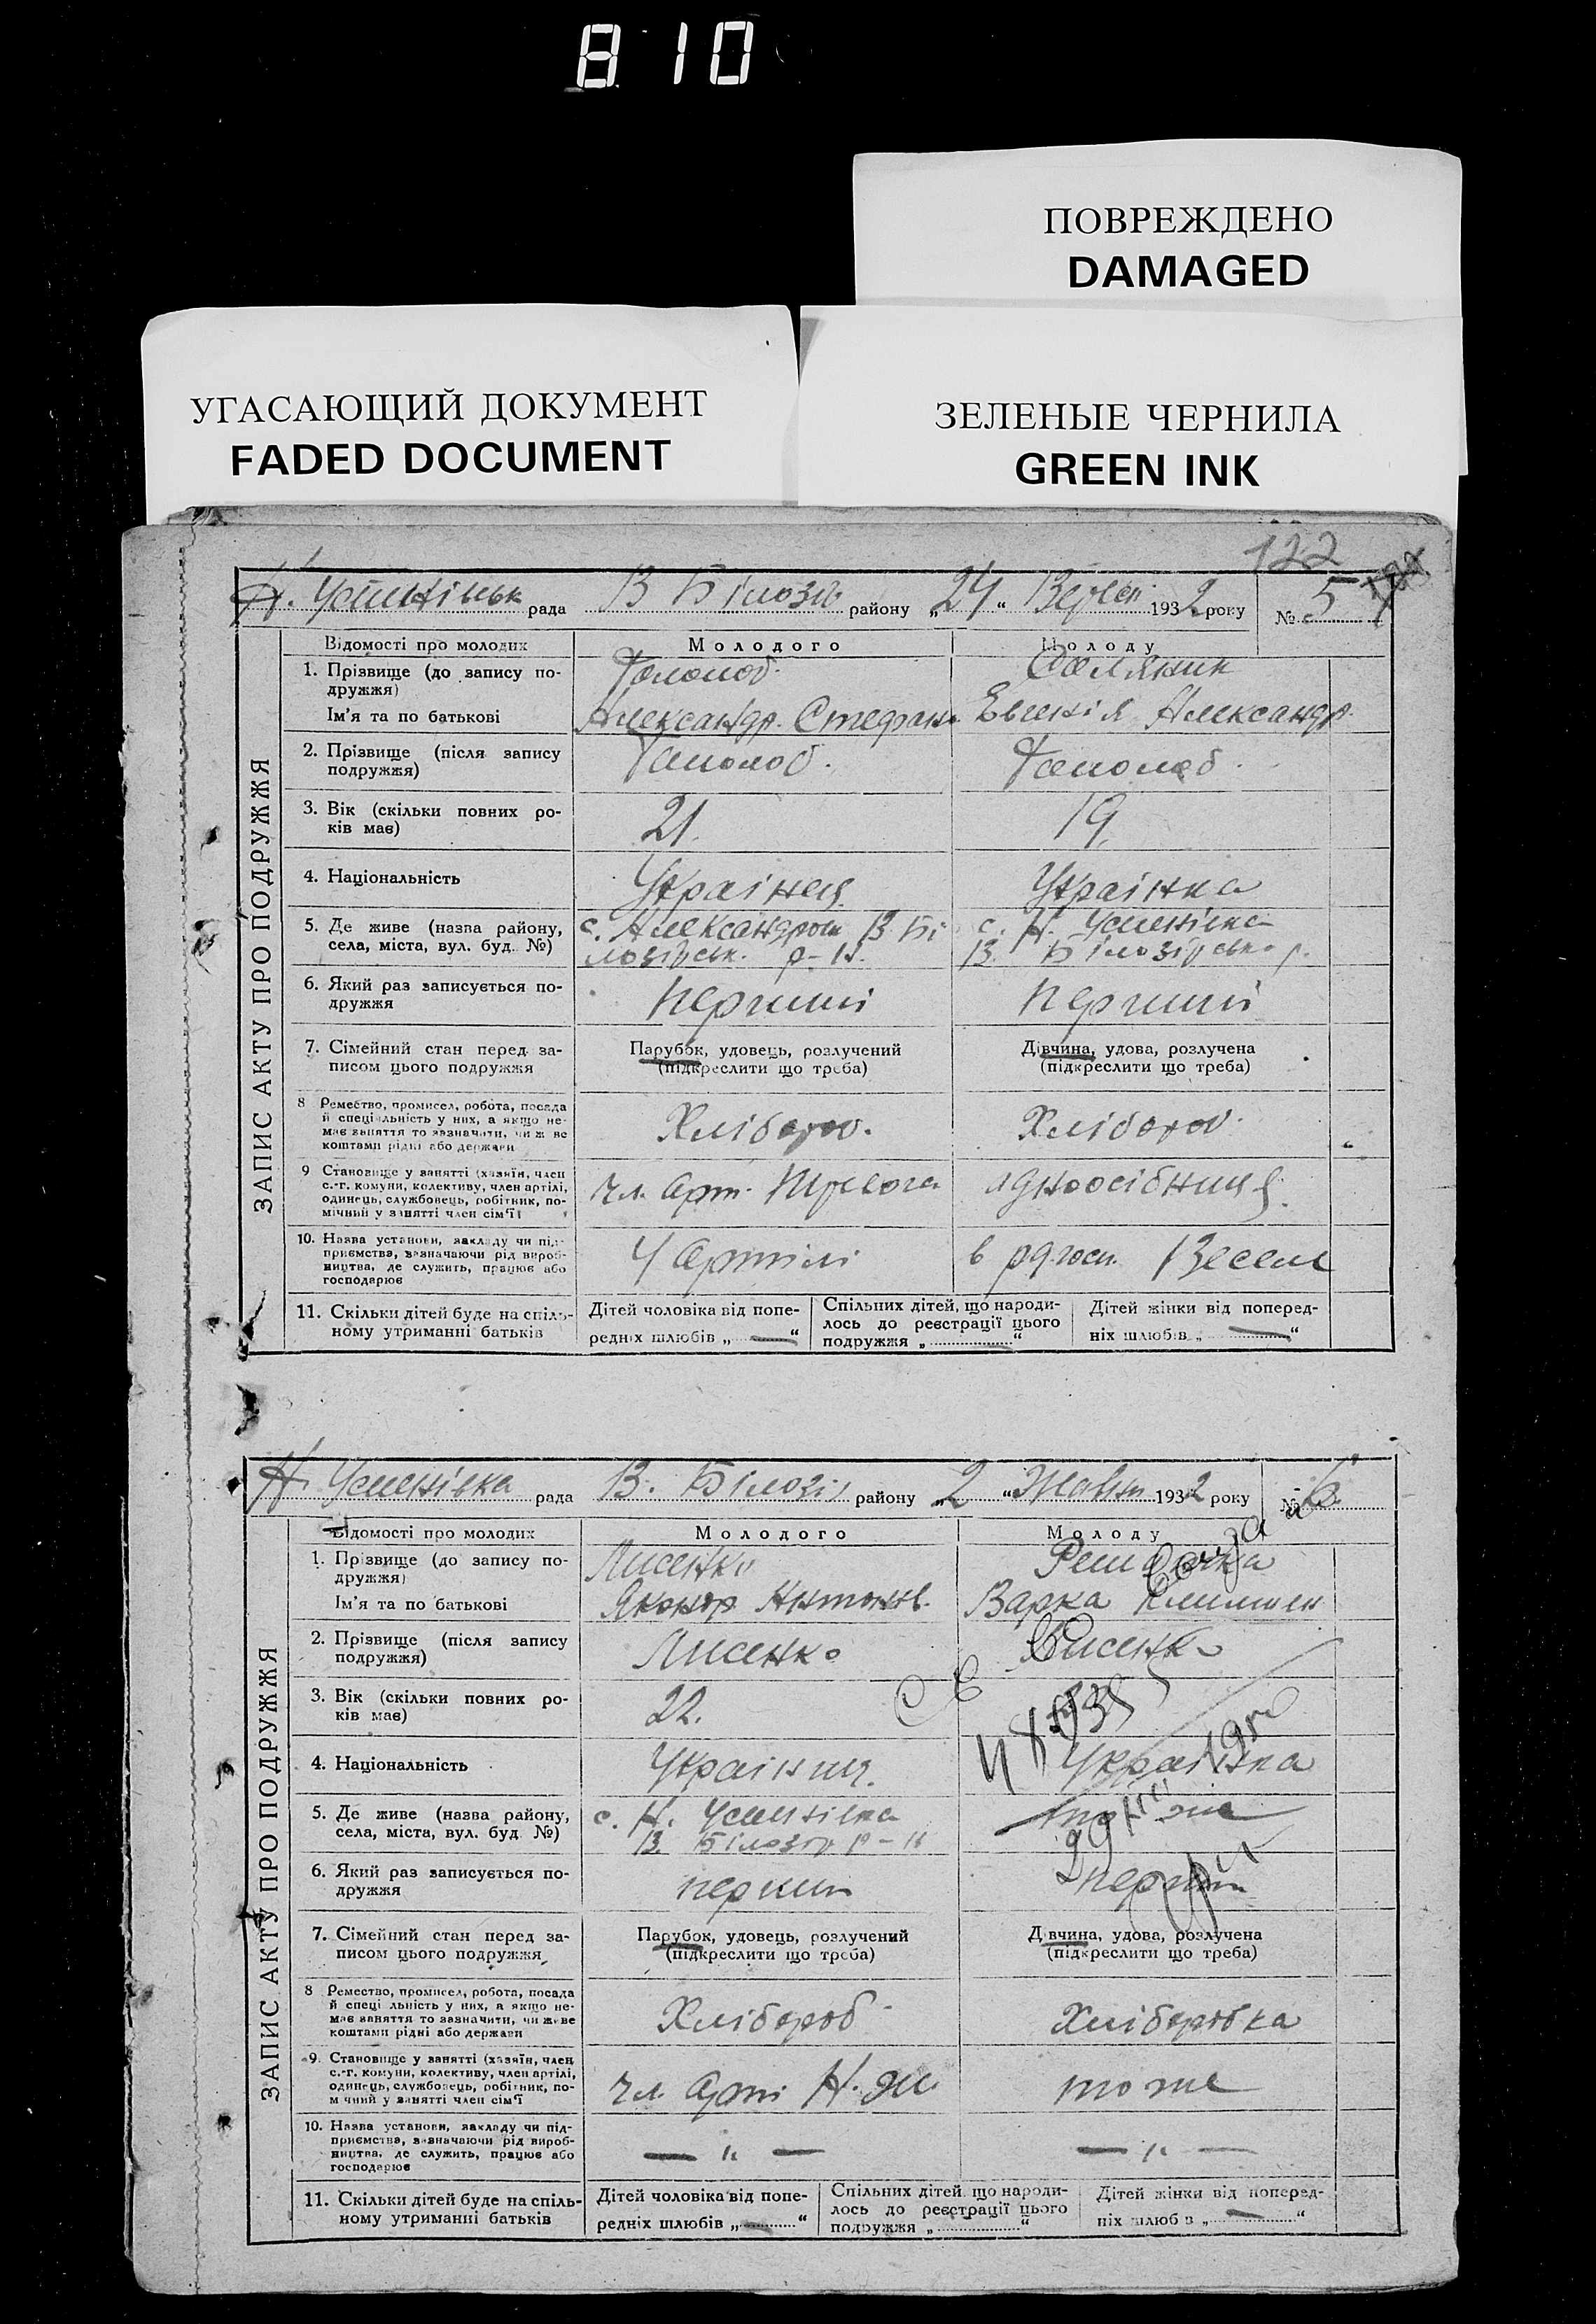 810
ПОВРЕЖДЕНО
DAMAGED
УГАСАЮЩИЙ ДОКУМЕНТ
FADED DOCUMENT
ЗЕЛЕНЫЕ ЧЕРНИЛА
GREEN INK
122
рада В Білозір району „24“ 1932 року № 5
Відомості про молодих Молодого Молоду
ЗАПИС АКТУ ПРО ПОДРУЖЖЯ
1. Прізвище (до запису по-
дружжя)
Ім'я та по батькові Александр. Стефан. Евгенія Александр.
2. Прізвище (після запису
подружжя)
3. Вік (скільки повних ро- 21. 19.
ків має)
4. Національність Українец Українка
5. Де живе (назва району, с. Александров В. Бі с. Н. Успенівка
села, міста, вул. буд. №) лозірськ. р-н. В. Білозірсько р.
6. Який раз записується по- перший перший
дружжя
7. Сімейний стан перед за- Парубок, удовець, розлучений Дівчина, удова, розлучена
писом цього подружжя (підкреслити що треба) (підкреслити що треба)
8 Ремество, промисел, робота, посада
й спеціальність у них, а якщо не- Хлібороб. Хлібороб.
має заняття то зазначити, чи ж не
коштами рідні або держави
9 Становище у занятті (хазяїн, член
с.-г. комуни, колективу, член артілі, чл. арт. одноосібниця.
одинець, службовець, робітник, по-
мічний у занятті член сім'ї)
10. Назва установи, закладу чи під-
приємства, зазначаючи рід вироб- У артілі в рд.госп. Весели
ництва, де служить, працює або
господарює
11. Скільки дітей буде на спіль- Дітей чоловіка від попе- Спільних дітей, що народи- Дітей жінки від поперед-
ному утриманні батьків редніх шлюбів „—“ лось до реєстрації цього ніх шлюбів „—“
подружжя „ “
Н Успенівка рада В. Білозір району „2“ Жовтн 1932 року № 6.
Відомості про молодих Молодого Молоду
ЗАПИС АКТУ ПРО ПОДРУЖЖЯ
1. Прізвище (до запису по- Лисенко
дружжя)
Ім'я та по батькові Антонов. Варка
2. Прізвище (після запису Лисенко Лисенко
подружжя)
3. Вік (скільки повних ро- 22.
ків має)
4. Національність Українець. Українка
5. Де живе (назва району, с. Н. Успенівка то же
села, міста, вул. буд №) В. Білозір р-н
6. Який раз записується по- перший перший
дружжя
7. Сімейний стан перед за- Парубок, удовець, розлучений Дівчина, удова, розлучена
писом цього подружжя (підкреслити що треба) (підкреслити що треба)
8 Ремество, промисел, робота, посада
й спеціальність у них, а якщо не- Хлібороб Хліборобка
має заняття то зазначити, чи живе
коштами рідні або держави
9. Становище у занятті (хазяїн, член
с.-г. комуни, колективу, член артілі, чл. арті Н. Ж. то же
одинець, службовець, робітник, по-
мічний у занятті член сім'ї
10. Назва установи, закладу чи під-
приємства, зазначаючи рід вироб- — „ — — „ —
ництва, де служить, працює або
господарює
11. Скільки дітей буде на спіль- Дітей чоловіка від попе- Спільних дітей, що народи- Дітей жінки від поперед-
ному утриманні батьків редніх шлюбів „—“ лось до реєстрації цього ніх шлюбів „—“
подружжя „ “